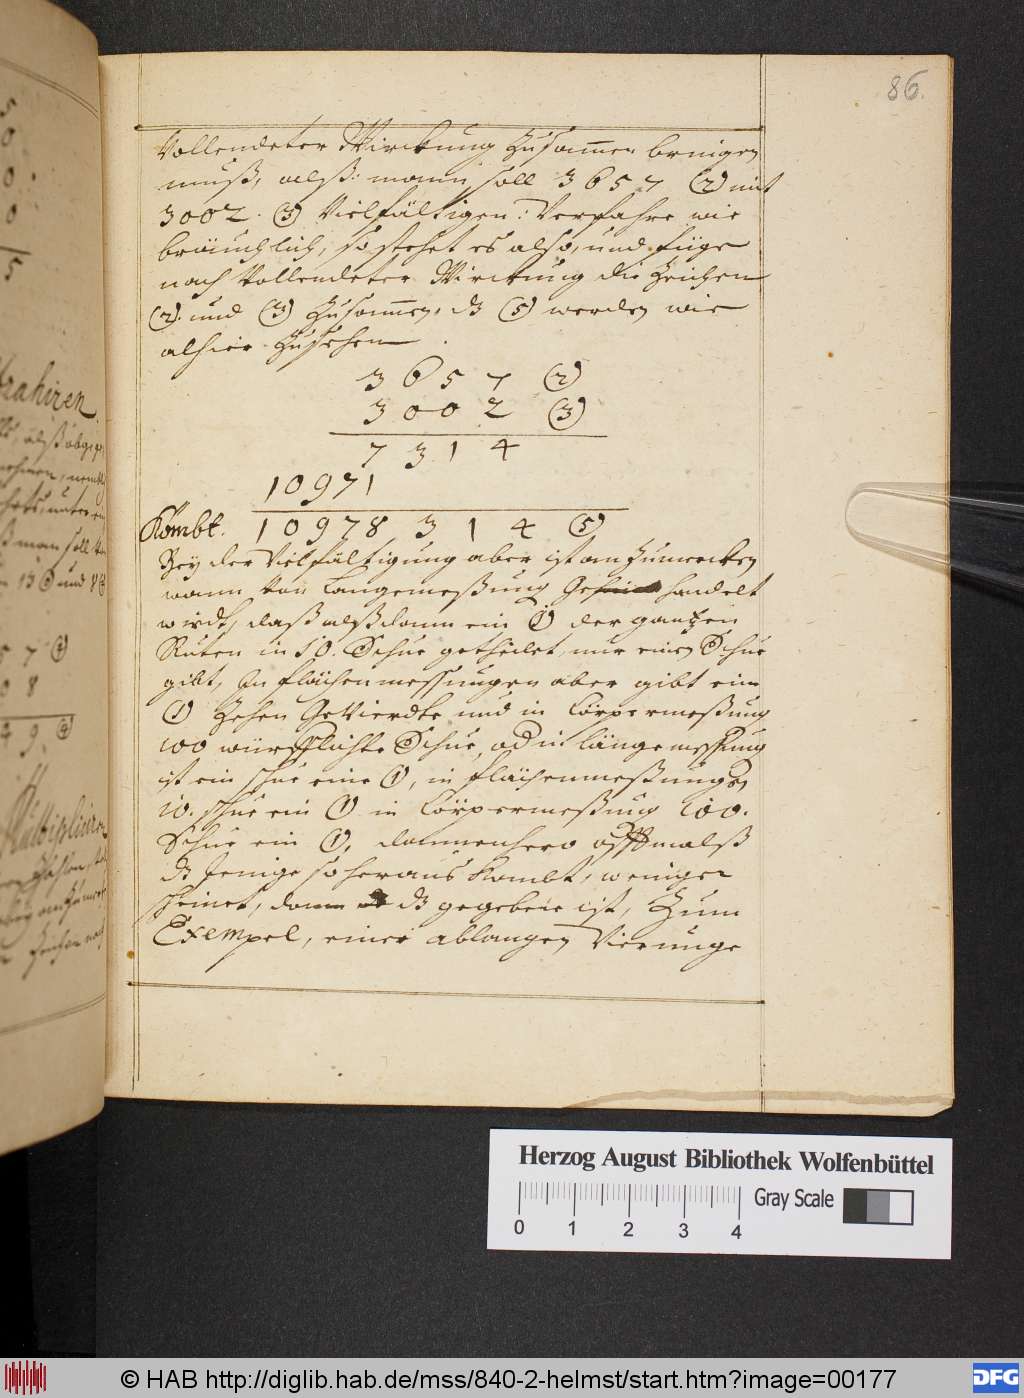 86.
Vollendeter Wirckung Zusammen bringen
muß, alß: mann soll 3657 (2) mit
3002. (3) Vielfältigen: Verfahre wie
bräuchlich, so stehet es also, und füge
nach Vollendeter Wirckung die Zeichen
(2). und (3) Zusammen, dz (5) werden wie
alhier Zusehen.
3 6 5 7 (2)
3 0 0 2 (3)
7 3 1 4
10971
Kömbt. 10978 3 1 4 (5)
Bey der Vielfältigung aber ist an Zumercken
wann Von Langemeßung gehandelt
wirdt, daß alßdann ein (1) der gantzen
Ruten in 10. Schue getheilet, nur einen Schue
gibt, In flächenmessungen aber gibt ein
(1) Zehen Gevierdte und in Cörpermeßung
100 würfflichte Schue, od in längemessung
ist ein schue eine (1), in flächenmeßungen
10. schue ein (1) in Cörpermeßung 100.
Schue ein (1), dannenhero offtmalß
dz Jenige so heraus kombt, weniger
scheinet, dann dz gegebene ist, Zum
Exempel, einer ablangen Vierunge
trahiren
Multipliciren
Herzog August Bibliothek Wolfenbüttel
0 1 2 3 4
Gray Scale
© HAB http://diglib.hab.de/mss/840-2-helmst/start.htm?image=00177
DFG